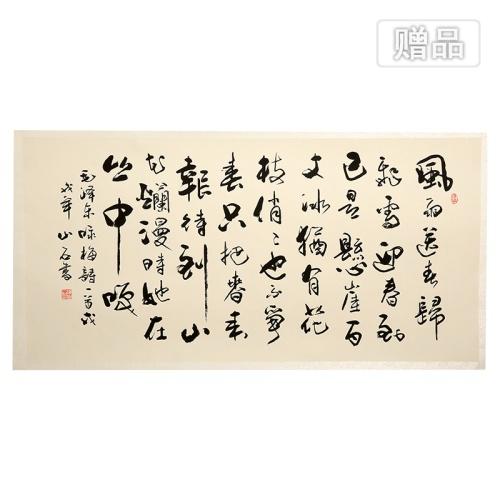 赠品
風雨送春歸
飛雪迎春到
已是懸崖百
丈冰猶有花
枝俏〻也不爭
春只把春來
報待到山
花爛漫時她在
丛中咲
毛澤东咏梅詩一首戊
戌年山石書